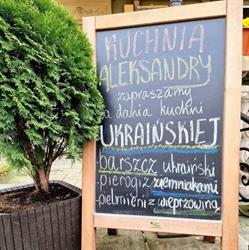 KUCHNIA
ALEKSANDRY
zapraszamy
na dania kuchni
UKRAIŃSKIEJ
-barszcz ukraiński
-pierogi z ziemniakami
-pielmieni z wieprzowiną